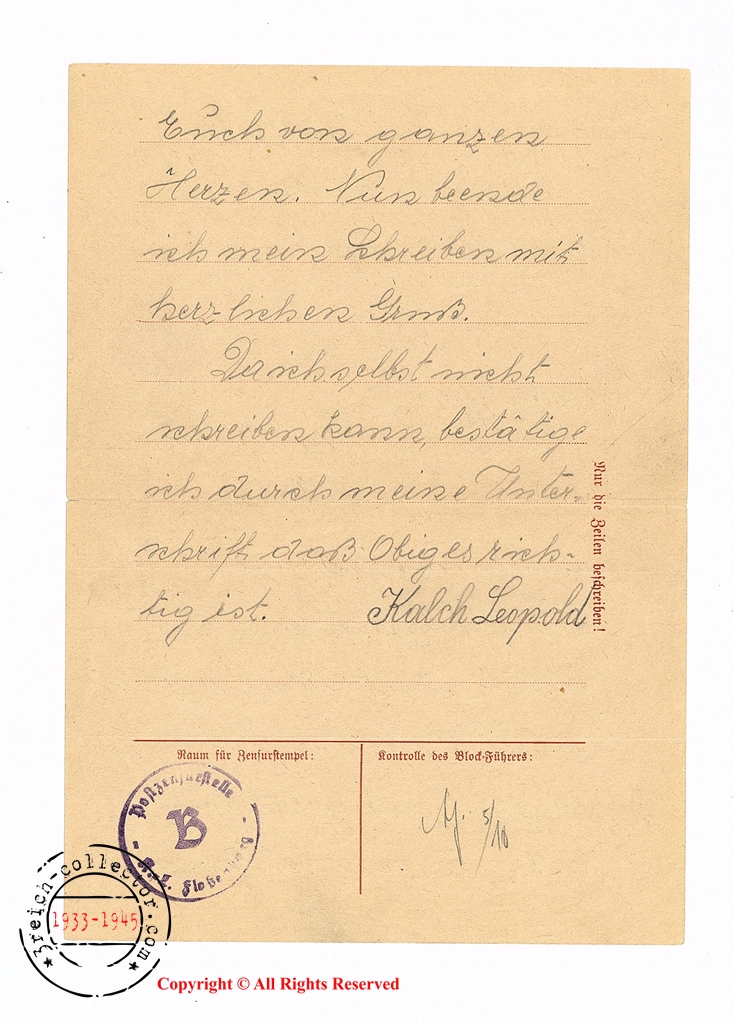 Euch von ganzen
Herzen. Nun beende
ich mein Schreiben mit
herzlichen Gruß.
Da ich selbst nicht
schreiben kann, bestätige
ich durch meine Unter-
schrift daß Obiges rich-
tig ist. Kalch Leopold
Nur die Zeilen beschreiben!
Raum für Zensurstempel:
Kontrolle des Block-Führers:
Postzensurstelle
B
K.L. Flossenbürg
5/10
3reich-collector.com
1933-1945
Copyright © All Rights Reserved